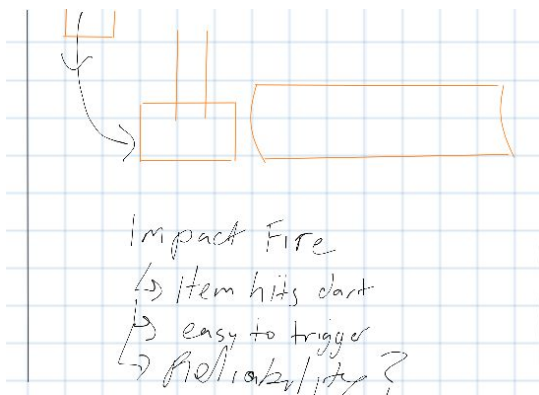 Impact Fire
↳ Item hits dart
↳ easy to trigger
↳ Reliability?